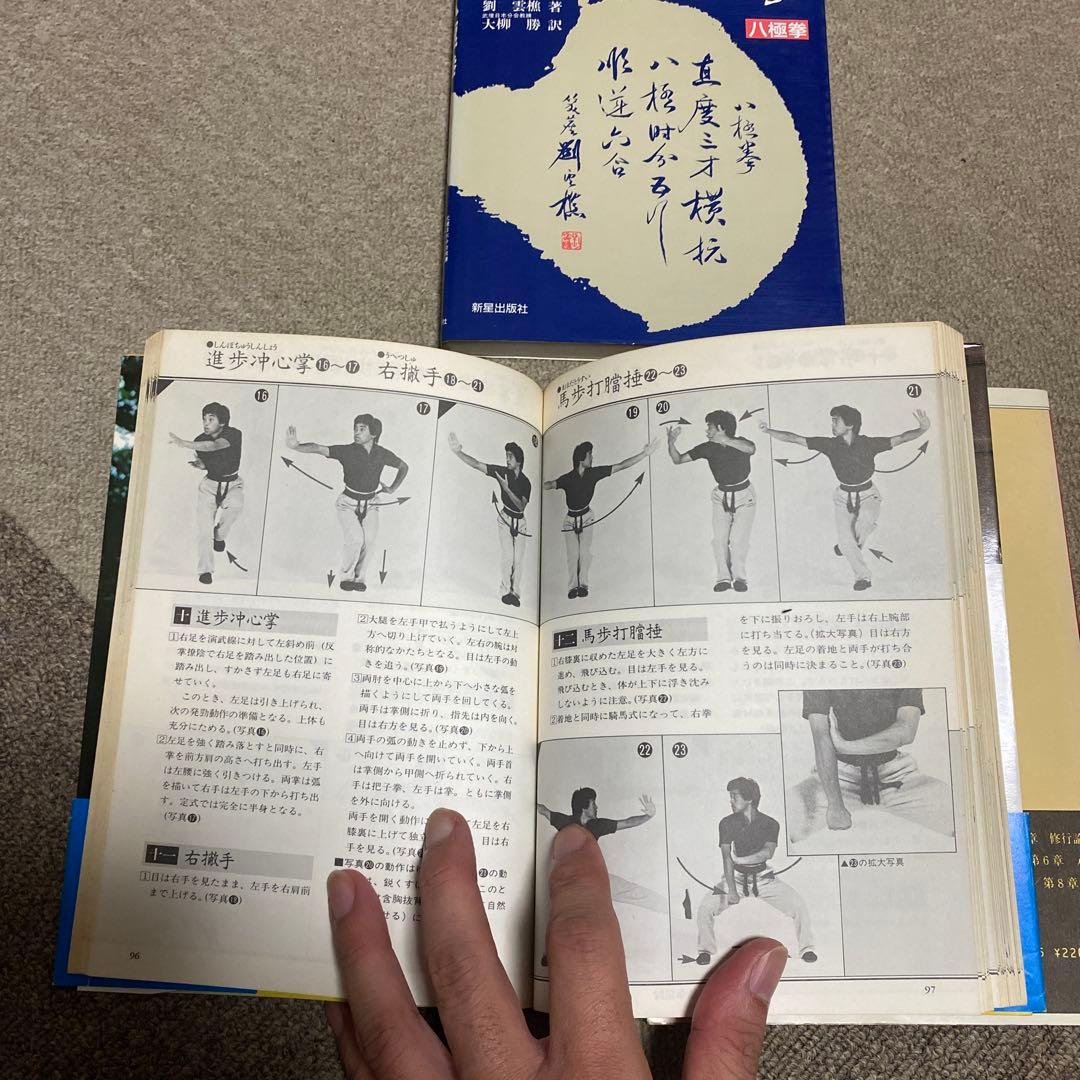 劉 雲樵 著
武壇日本分会教練
大柳 勝 訳
八極拳
八極拳
直度三才横抗
八極时分五行
順逆六合
笑塵劉雲樵
新星出版社
●しんぽちゅうしんしょう
進歩冲心掌⑯〜⑰
●うへつしゅ
右撇手⑱〜㉑
馬歩打膅捶㉒〜㉓
⑯
⑰
⑲
⑳
㉑
十 進歩冲心掌
1右足を演武線に対して左斜め前(反
掌撩陰で右足を踏み出した位置)に
踏み出し、すかさず左足も右足に寄
せていく。
このとき、左足は引き上げられ、
次の発勁動作の準備となる。上体も
充分にためる。(写真⑯)
2左足を強く踏み落とすと同時に、右
掌を前方肩の高さへ打ち出す。左手
は左腰に強く引きつける。両掌は弧
を描いて右手は左手の下から打ち出
す。定式では完全に半身となる。
(写真⑰)
十一 右撇手
1目は右手を見たまま、左手を右肩前
まで上げる。(写真⑱)
96
2大腿を左手甲で払うようにして左上
方へ切り上げていく。左右の腕は対
称的なかたちとなる。目は左手の動
きを追う。(写真⑲)
3両肘を中心に上から下へ小さな弧を
描くようにして両手を回してくる。
両手は掌側に折り、指先は内を向く。
目は右方を見る。(写真⑳)
4両手の弧の動きを止めず、下から上
へ向けて両手を開いていく。両手首
は掌側から甲側へ折られていく。右
手は把子拳、左手は掌。ともに掌側
を外に向ける。
両手を開く動作に て左足を右
膝裏に上げて独立 目は右
手を見る。(写真
■写真⑳の動作は ㉑の動
、鋭くす このと
含胸抜 自然
せる)に
十二 馬歩打膅捶
1右膝裏に収めた左足を大きく左方に
進め、飛び込む。目は左手を見る。
飛び込むとき、体が上下に浮き沈み
しないように注意。(写真㉒)
2着地と同時に騎馬式になって、右拳
を下に振りおろし、左手は右上腕部
に打ち当てる。(拡大写真)目は右方
を見る。左足の着地と両手が打ち合
うのは同時に決まること。(写真㉓)
㉒
㉓
▲㉓の拡大写真
97
章 修行論
第6章
第8章
¥220